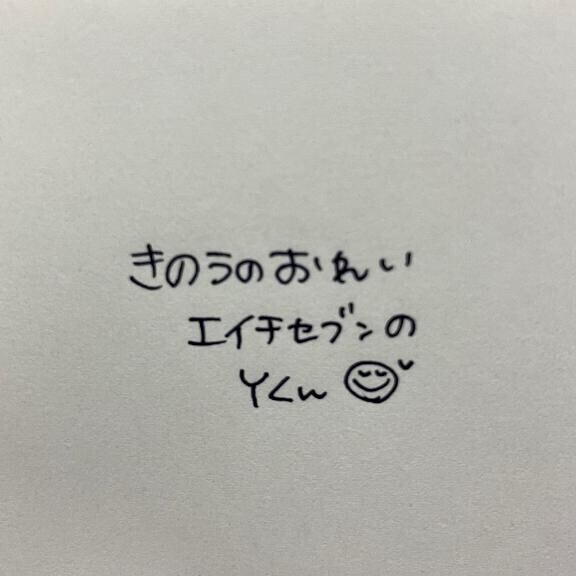 きのうのおれい
エイチセブンの
Yくん